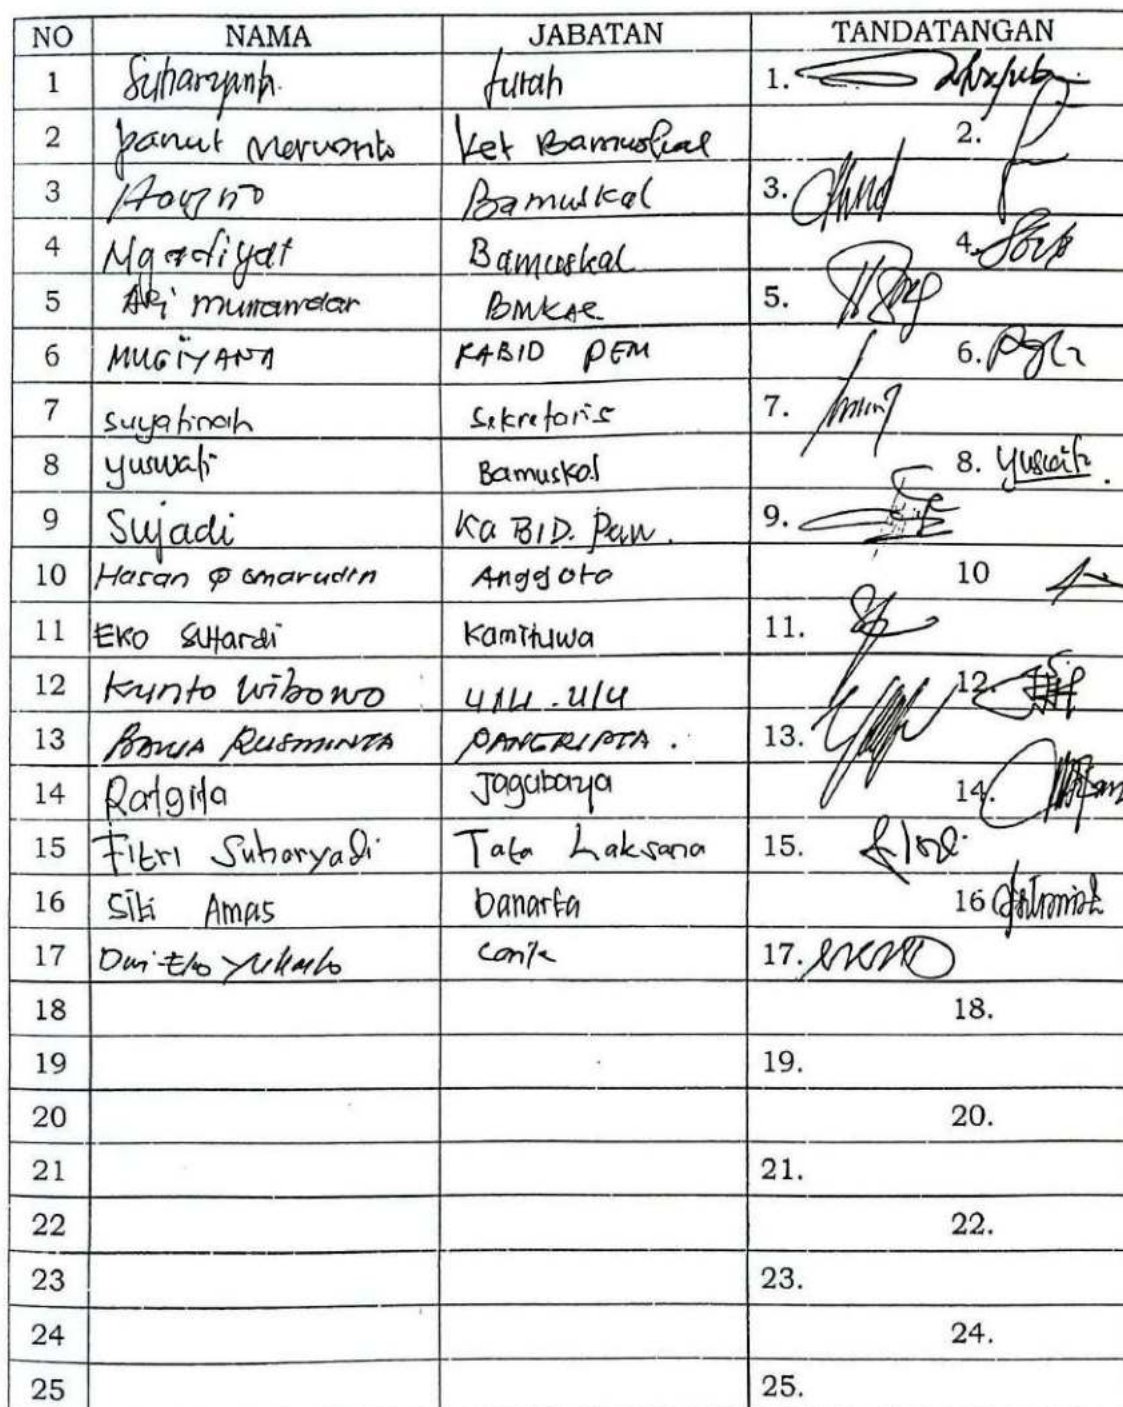 NO NAMA JABATAN TANDATANGAN
1 Suharyanti. Lurah 1.
2 Ket Bamuskal 2.
3 Bamuskal 3.
4 Ngadiyat Bamuskal 4.
5 Ari munandar BMKAL 5.
6 MUGIYANA KABID PEM 6.
7 suyatinah Sekretaris 7.
8 yuswati Bamuskal 8. yuswati.
9 Sujadi Ka BID. Paw. 9.
10 Hasan Qomarudin Anggota 10
11 EKO SUHardi Kamituwa 11.
12 Kunto Wibowo Ulu.ulu 12.
13 RUSMINTA PANGRIPTA. 13.
14 Ratgita Jagabaya 14.
15 Fitri Suharyadi Tata Laksana 15.
16 Siti Amas Danarta 16
17 Dwi Eko Carik 17.
18 18.
19 19.
20 20.
21 21.
22 22.
23 23.
24 24.
25 25.